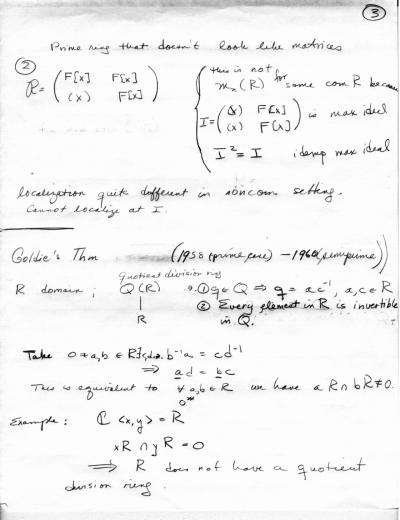 ③
Prime ring that doesn't look like matrices
② R = ( F[x] F[x]
(x) F[x] )
this is not
m_n(R) for some com R because
I = ( (x) F[x]
(x) F[x] ) is max ideal
I² = I idemp max ideal
localization quite different in noncom setting.
Cannot localize at I.
Goldie's Thm (1958 (prime case) – 1960 (semiprime))
Quotient division ring
R domain; Q(R) ① q ∈ Q ⇒ q = ac⁻¹, a,c ∈ R
| ② Every element in R is invertible
R in Q.
Take 0 ≠ a,b ∈ R ∃ c,d ∋ b⁻¹a = cd⁻¹
⇒ ad = bc
This is equivalent to ∀ a,b ∈ R we have aR ∩ bR ≠ 0.
0≠
Example: ℂ <x,y> = R
xR ∩ yR = 0
⇒ R does not have a quotient
division rieng.